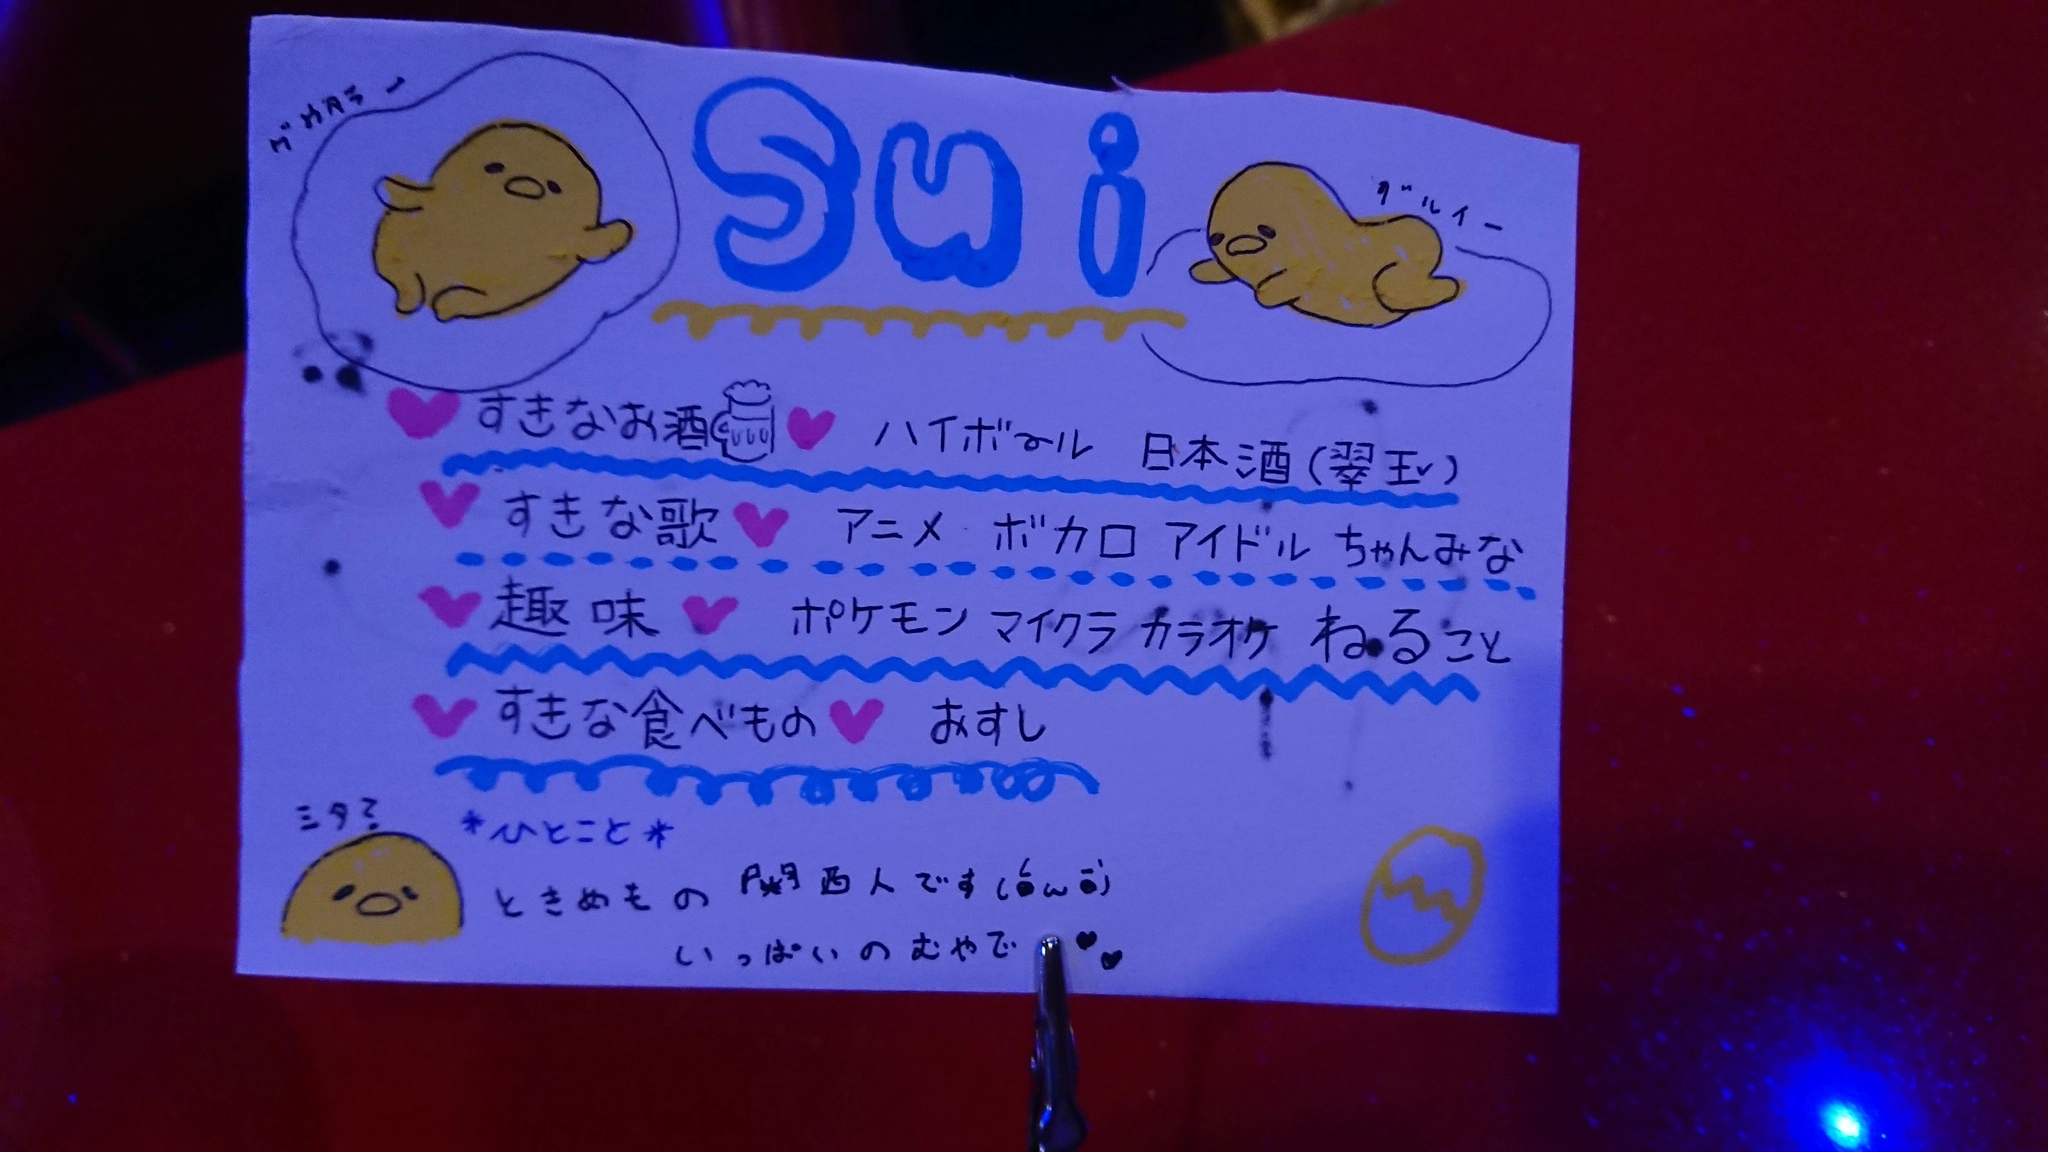 Sui
ダルイー
すきなお酒 ハイボール 日本酒(翠玉)
すきな歌 アニメ ボカロ アイドル ちゃんみな
趣味 ポケモン マイクラ カラオケ ねること
すきな食べもの おすし
ミタ?
*ひとこと*
ときめもの 関西人です(・ω・)
いっぱいのむやで